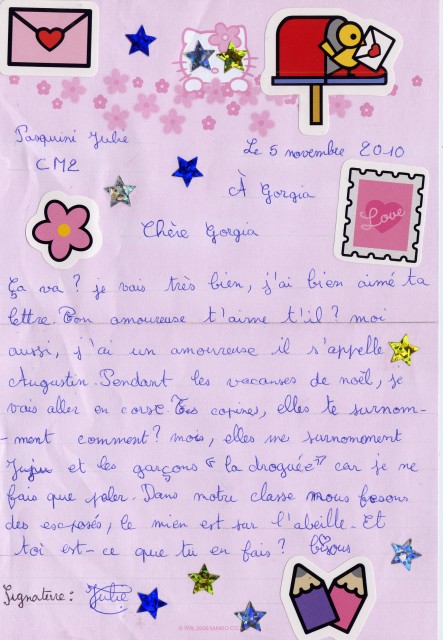 Pasquini Julie
Le 5 novembre 2010
CM2
À Gorgia
Love
Chère Gorgia
Ça va ? je vais très bien, j'ai bien aimé ta
lettre. Ton amoureuse t'aime t'il ? moi
aussi, j'ai un amoureuse il s'appelle
Augustin. Pendant les vacanses de noël, je
vais aller en corse. Tes copines, elles te surnom-
-ment comment ? mois, elles me surnomment
Juju et les garçons " la droguée " car je ne
fais que parler. Dans notre classe nous fesons
des esxposés, le mien est sur l'abeille. Et
toi est-ce que tu en fais ? Bisous
Signature : Julie